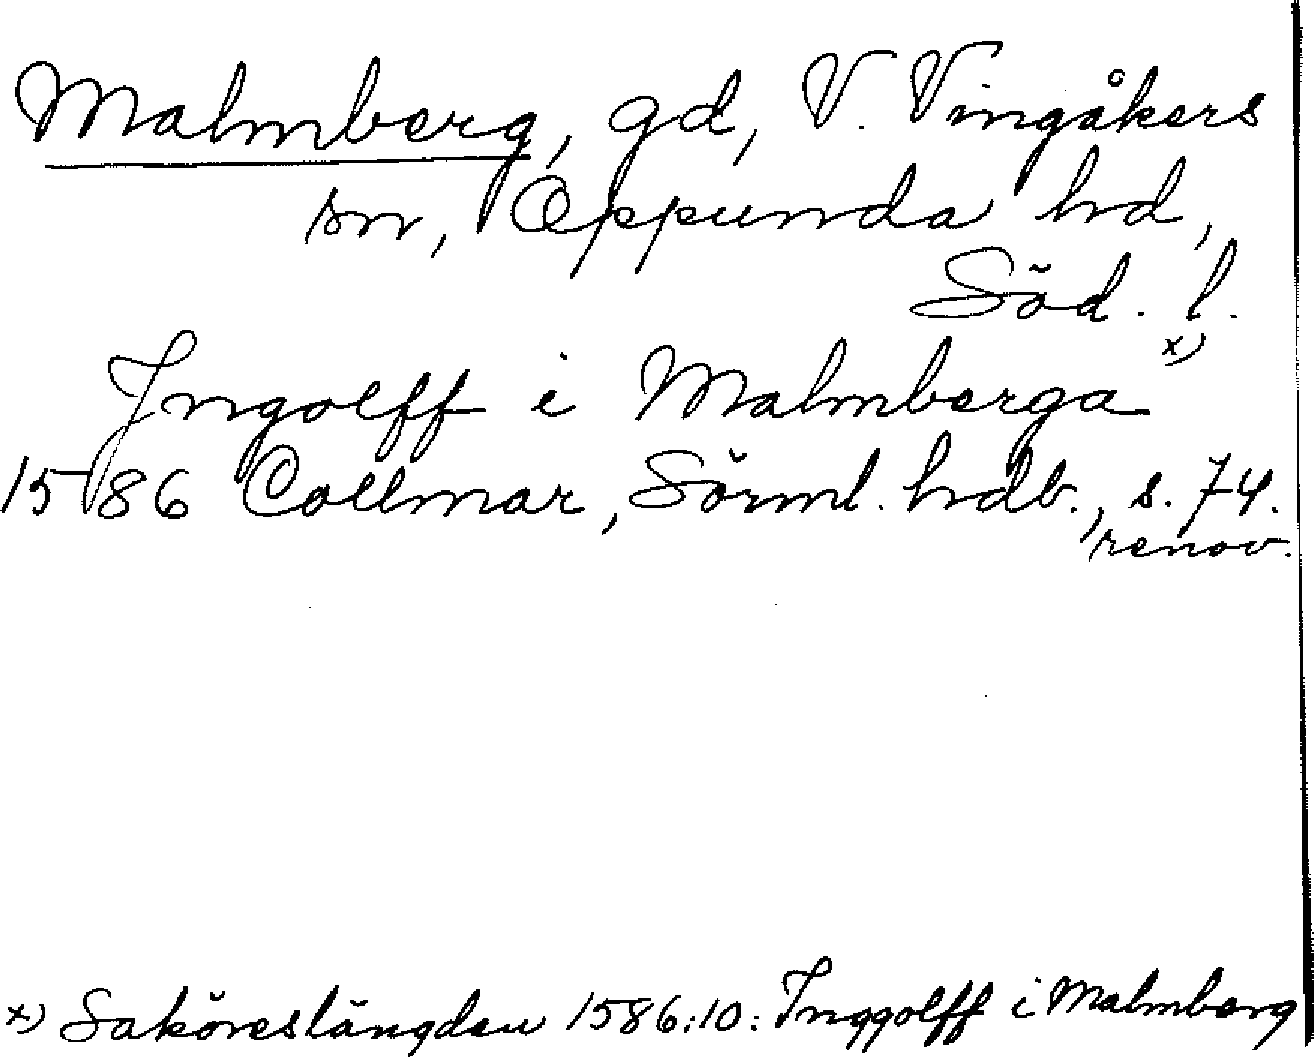 Malmberg, gd, V. Vingåkers
sn, Oppunda hd,
Söd. l.
Jngolff i Malmberga x)
1586 Collmar, Sörml. hdb., s. 74.
renov.
x) Saköreslängden 1586:10: Jnggolff i Malmberg